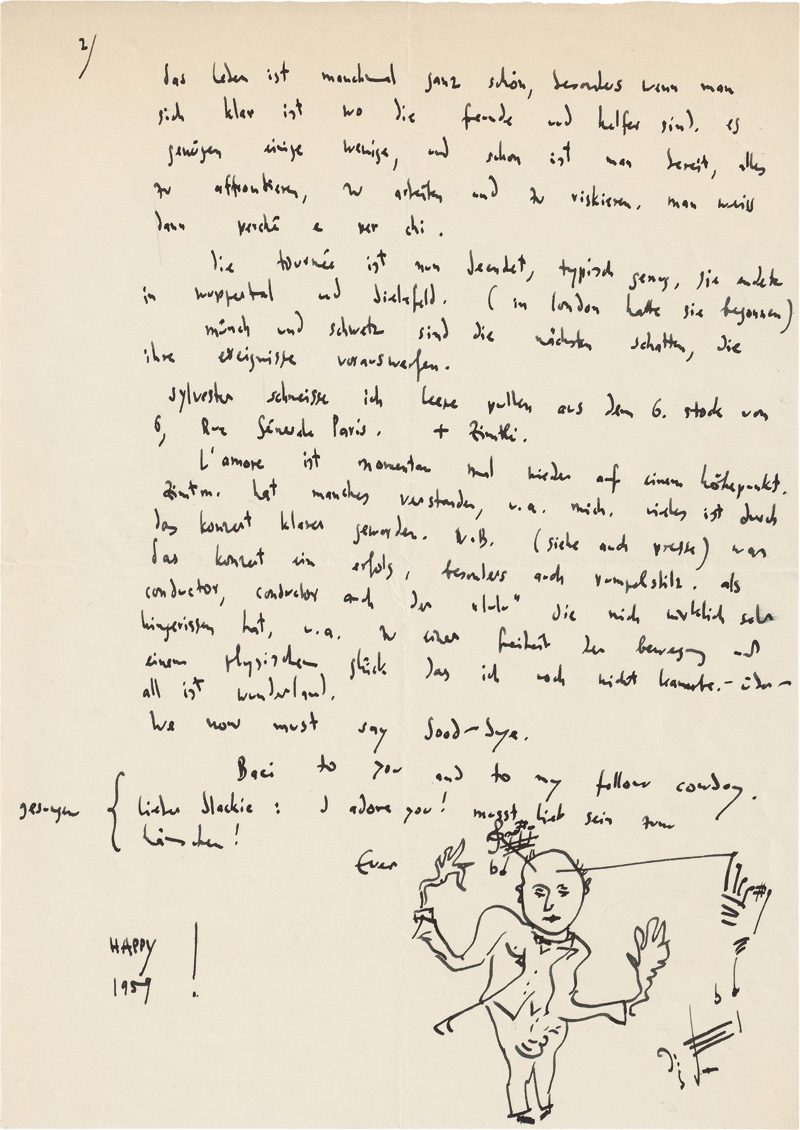 2/
das leben ist manchmal ganz schön, besonders wenn man
sich klar ist wo die freunde und helfer sind. es
genügen einige wenige, und schon ist man bereit, alles
zu affrontieren, zu arbeiten und zu riskieren. man weiss
dann perché e per chi.
die tournée ist nun beendet, typisch genug, sie endete
in wuppertal und bielefeld. (in london hatte sie begonnen)
münch und schweiz sind die nächsten schatten, die
ihre ereignisse vorauswerfen.
sylvester schmeisse ich leere pullen aus dem 6. stock von
6, Rue Paris. +
L'amore ist momentan mal wieder auf einem höhepunkt.
hat manches verstanden, u.a. mich. vieles ist durch
das konzert klarer geworden. N.B. (siehe auch presse) war
das konzert ein erfolg, besonders auch rumpelstilz. als
conductor, conductor auch der "lulu" die mich wirklich sehr
hingerissen hat, u.a. zu einer freiheit der bewegung und
einem physischen glück das ich noch nicht kannte. - über-
all ist wunderland.
We now must say Good-bye.
Baci to you and to my fellow cowboy.
gesungen { lieber blackie : I adore you! musst lieb sein zum
hänschen!
Ever
HAPPY
1959 !